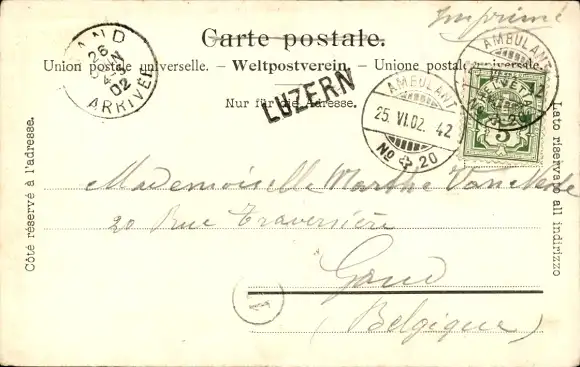 Imprimé
Carte postale.
Union postale universelle. – Weltpostverein. – Unione postale universale.
Nur für die Adresse.
LUZERN
AND
26
JUIN
02
ARRIVÉE
AMBULANT
25. VI. 02. 42
No 20
AMBULANT
HELVETIA
5
Côté réservé à l'adresse.
Lato riservato all indirizzo
Mademoiselle Marthe
20 Rue Traversière
Gand
(Belgique)
1